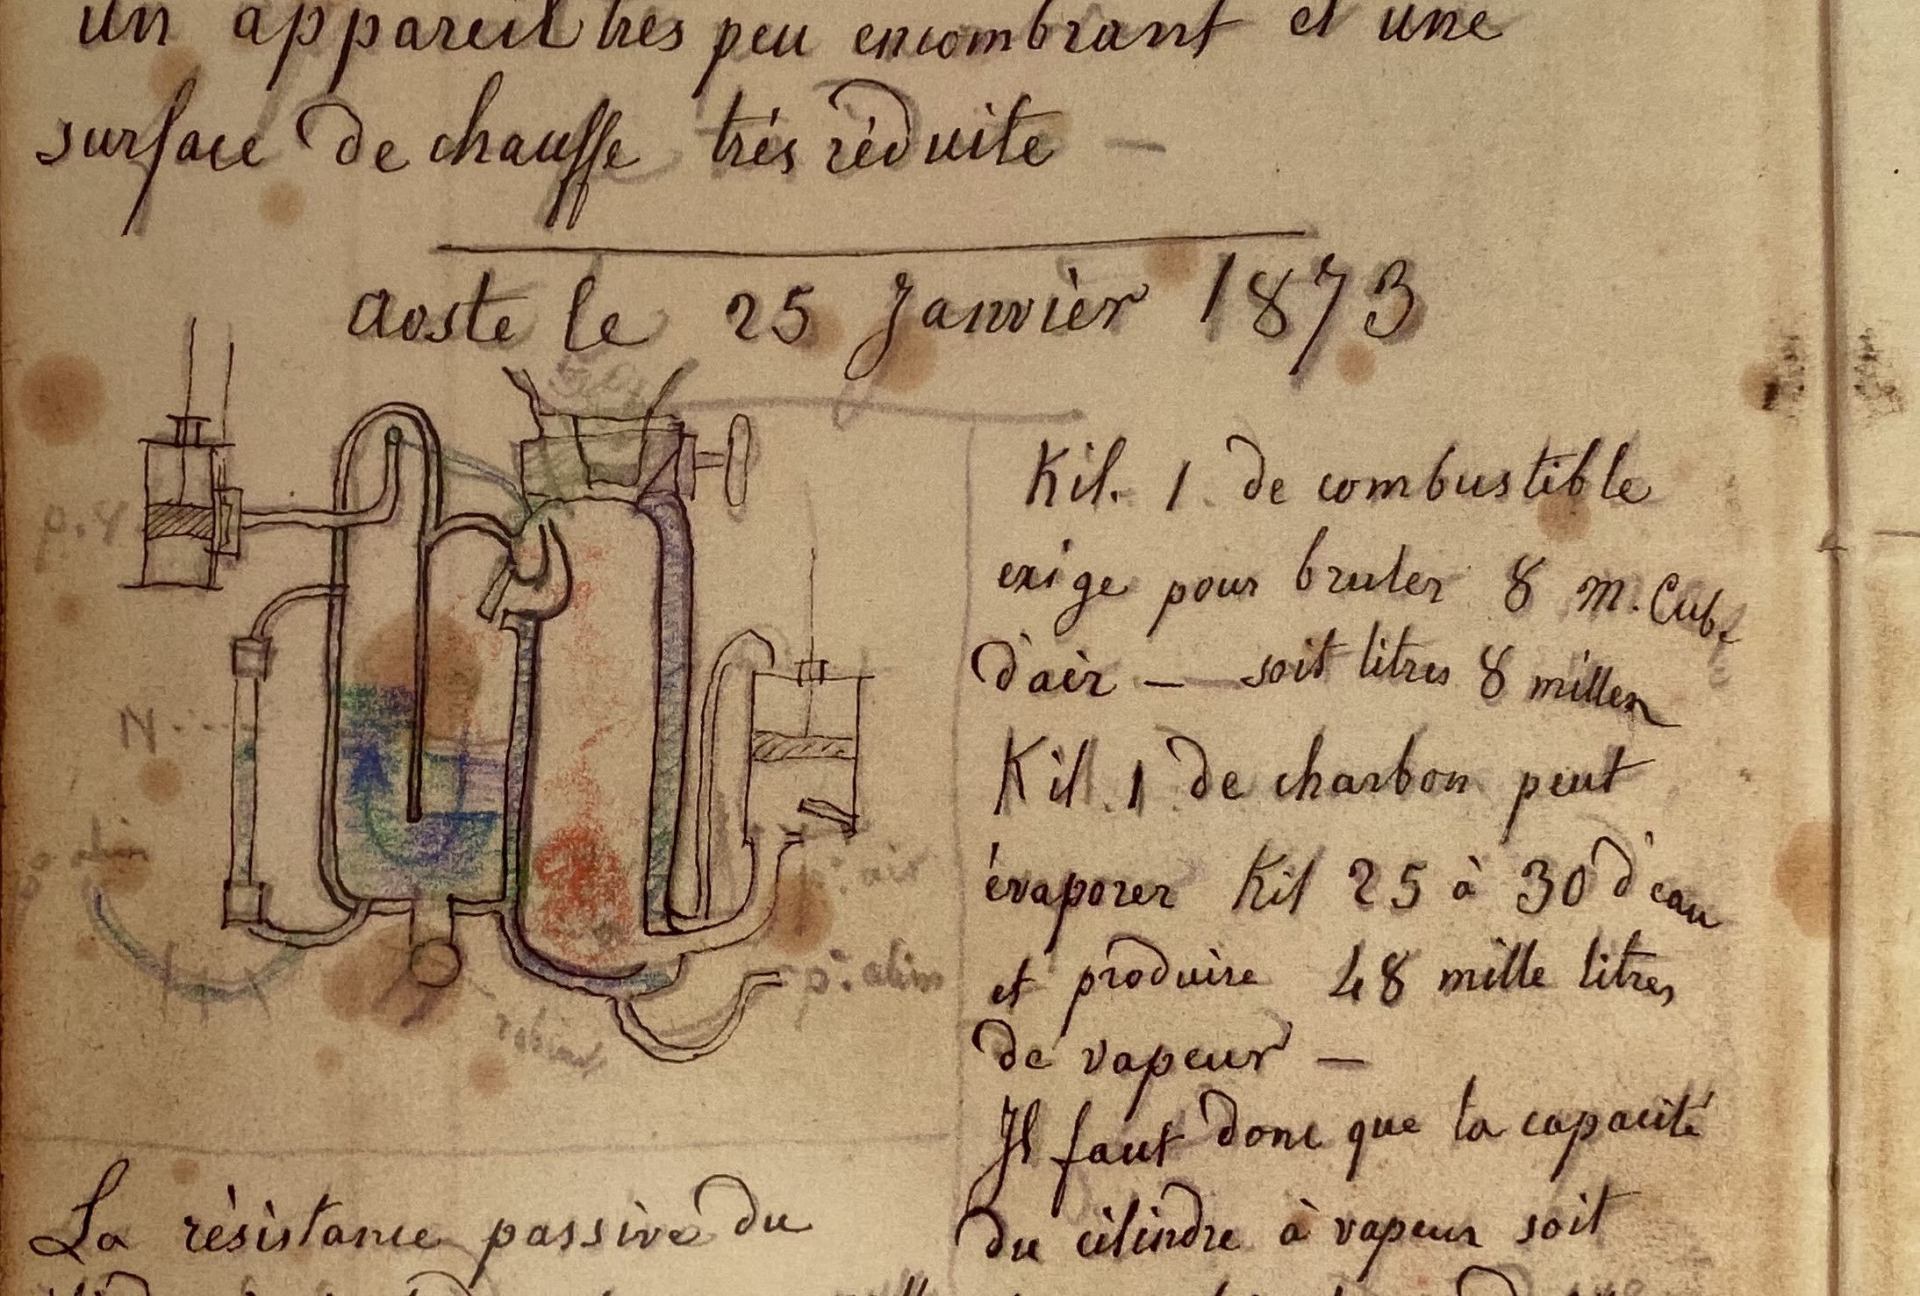 un appareil très peu encombrant et une
surface de chauffe trés réduite —
Aoste le 25 Janvièr 1873
Kil. 1 de combustible
exige pour bruler 8 m. Cub.
d'air — soit litres 8 milles
Kil. 1 de charbon peut
évaporer Kil 25 à 30 d'eau
et produire 48 mille litres
de vapeur —
Il faut donc que la capacité
du cilindre à vapeur soit
p. v.
N
p: air
p: alim
La résistance passive du